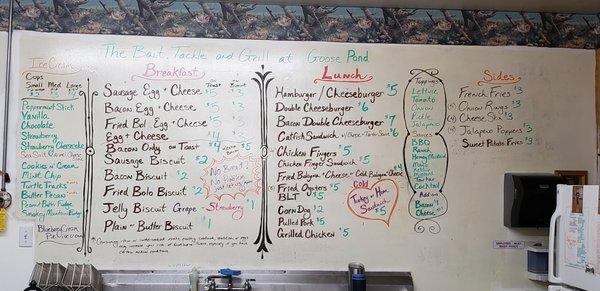 The Bait, Tackle and Grill at Goose Pond
Ice Cream
Cups
Small Med Large
Peppermint Stick
Vanilla
Chocolate
Strawberry
Strawberry Cheesecake
Cookies n' Cream
Mint Chip
Turtle Tracks
Butter Pecan
Peanut Butter Fudge
Smokey Mountain Fudge
Breakfast
on Toast
Sausage Egg + Cheese $5
Bacon Egg + Cheese $5
Fried Bol. Egg + Cheese $5
Egg + Cheese $4
Bacon Only on Toast $4
Sausage Biscuit $2
Bacon Biscuit $2
Fried Bolo Biscuit $2
Jelly Biscuit Grape or Strawberry $1
Plain or Butter Biscuit $1
Lunch
Hamburger / Cheeseburger $5
Double Cheeseburger $6
Bacon Double Cheeseburger $7
Catfish Sandwich $6
Chicken Fingers $5
Chicken Finger Sandwich $5
Fried Bologna + Cheese or Cold Bologna + Cheese $4
Fried Oysters $5
BLT $5
Corn Dog $2
Pulled Pork $5
Grilled Chicken $5
Cold
Turkey or Ham
Sandwich
$5
Toppings
Lettuce
Tomato
Onion
Pickle
Jalapeno
Sauces
BBQ
Ranch
Honey Mustard
Mayo
Ketchup
Tartar
Cocktail
Add on
Bacon $1
Cheese
Sides
French Fries $3
Onion Rings $3
Cheese Stix $3
Jalapeno Poppers $3
Sweet Potato Fries $3